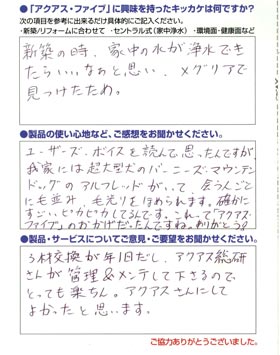 ●「アクアス・ファイブ」に興味を持ったキッカケは何ですか?
次の項目を参考に出来るだけ具体的にご記入ください。
・新築/リフォームに合わせて ・セントラル式(家中浄水) ・環境面・健康面など
新築の時、家中の水が浄水でき
たらいいなぁと思い、メグリアで
見つけたため。
●製品の使い心地など、ご感想をお聞かせください。
ユーザーズ・ボイスを読んで思ったんですが、
我家には超大型犬のバーニーズ・マウンテン
ドッグのアルフレッドがいて、会う人ごと
にも並み、毛光りをほめられます。確かに
すごい、ピカピカしてるんです。これって「アクアス・
ファイブ」のおかげだったんですね。ありがとう?
●製品・サービスについてご意見・ご要望をお聞かせください。
ろ材交換が年1回だし、アクアス総研
さんが管理&メンテして下さるので、
とっても楽ちん。アクアスさんにして
よかったと思います。
ご協力ありがとうございました。